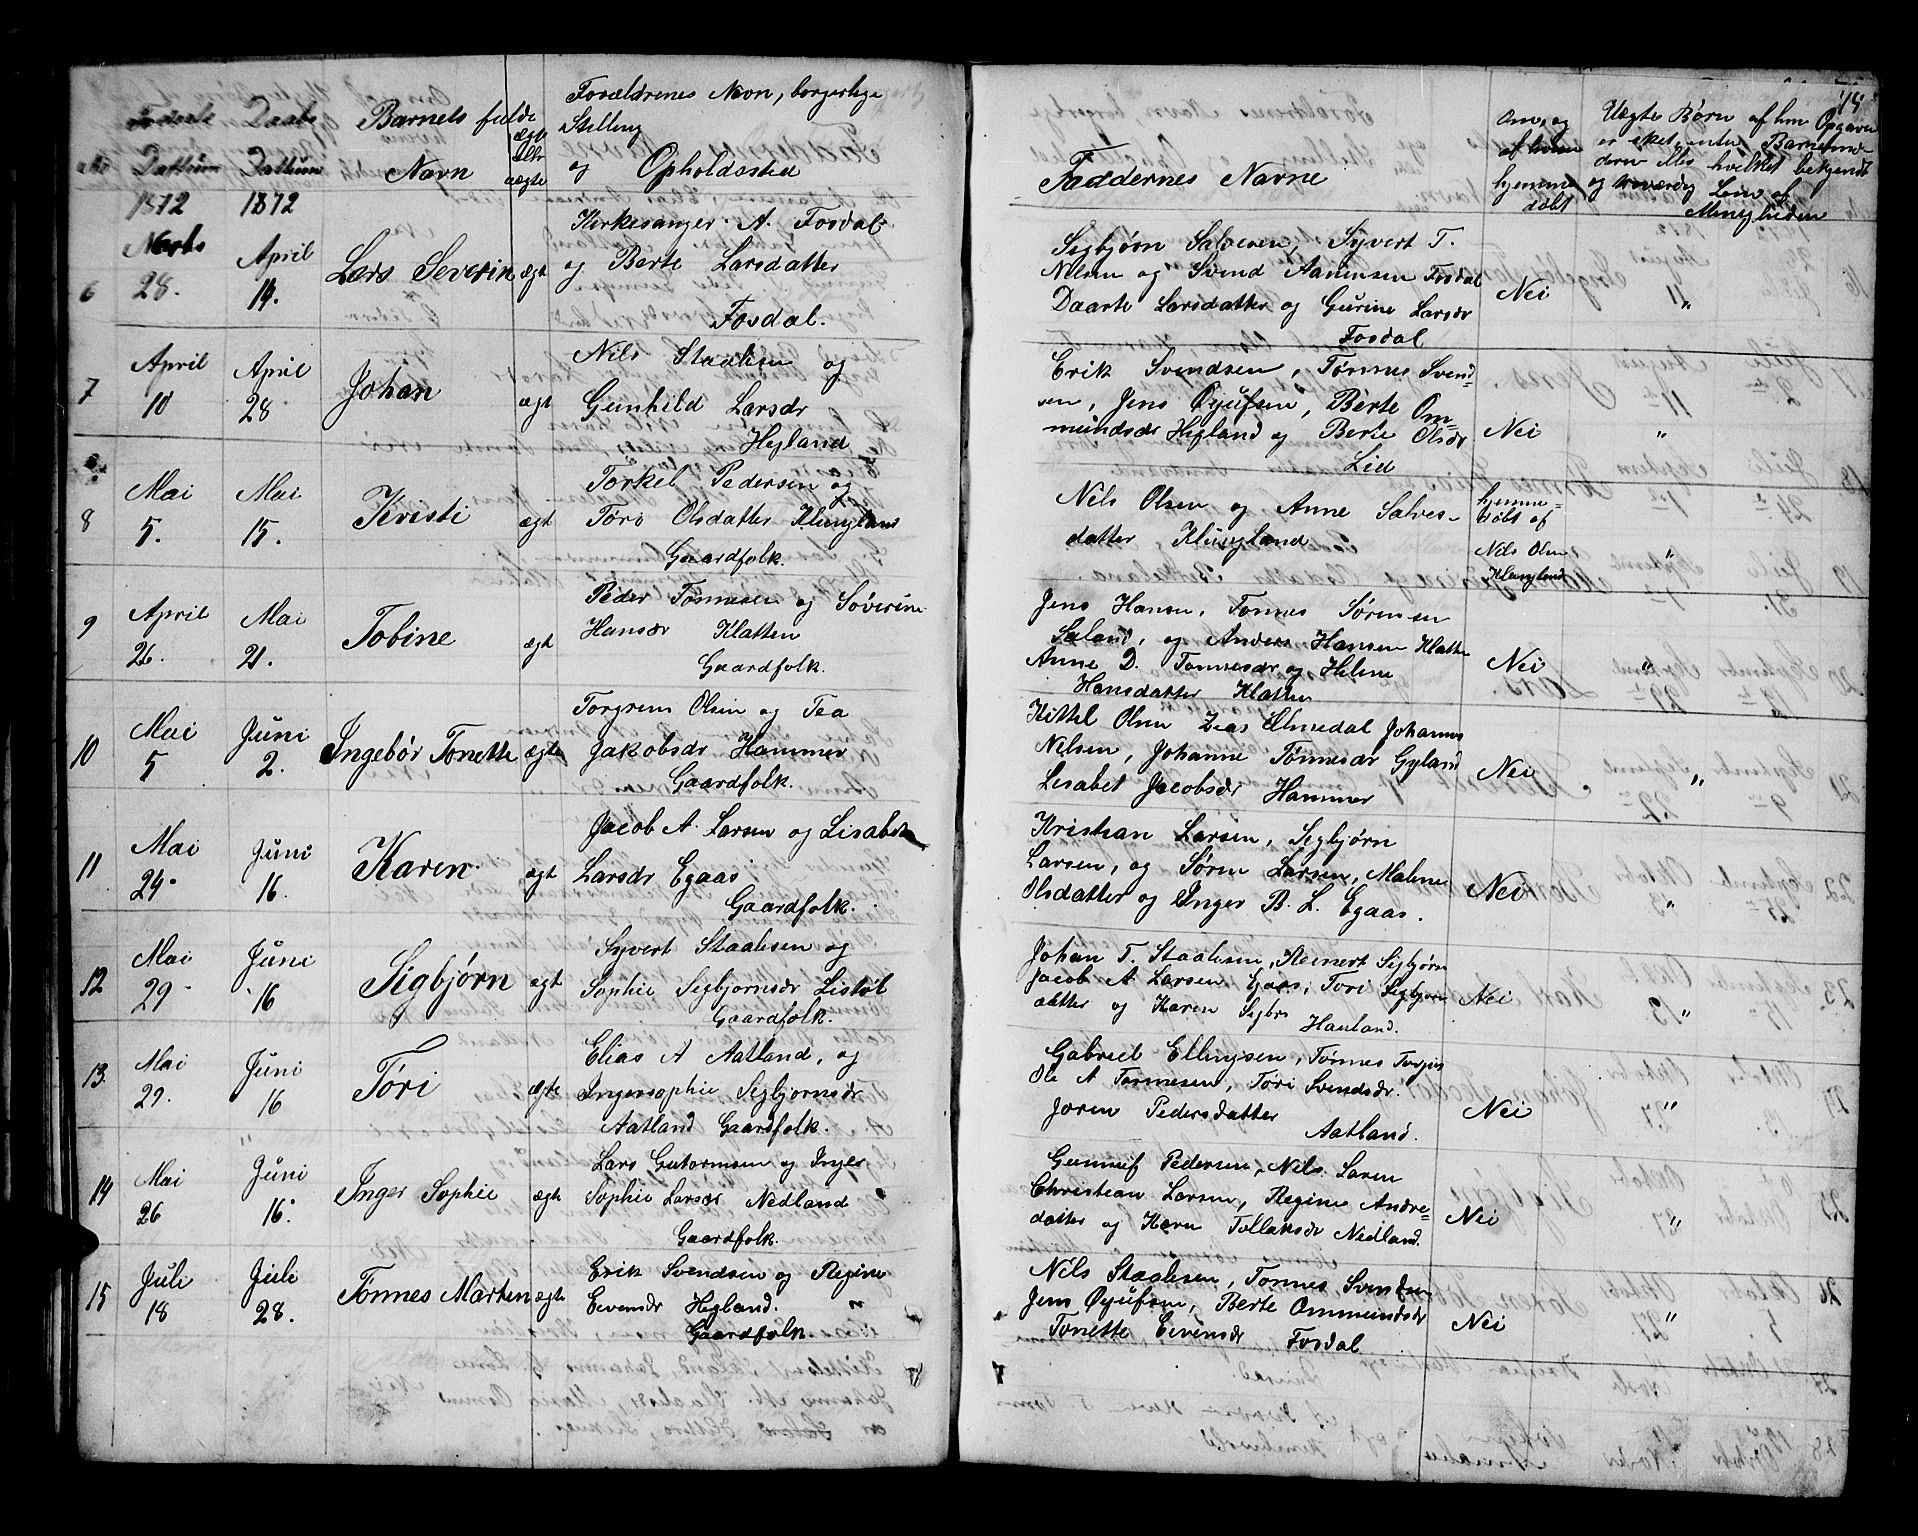 Fødsels Dattum 1872
Daabs Dattum 1872
Barnets fulde Navn
ægte eller uægte
Forældrenes Navn, borgerlige
Stilling
og Opholdssted
Faddernes Navne
Om, og
af hvem
hjemme
døbt
Uægte Børn af hvem Opgaven
er sket, enten Barnemo-
deren eller hvilket bekjendt
og troværdig Lem af
Menigheden
6
Marts
28.
April
14.
Lars Severin
ægt
Kirkesanger A. Fosdal
og Berte Larsdatter
Fosdal.
Sigbjørn Salvesen, Syvert T.
Nilsen og Svend Aanensen Fosdal
Daarte Larsdatter og Gurine Larsdr
Fosdal
Nei
"
7
April
10
April
28
Johan
ægt
Nils Staalesen og
Gunhild Larsdr
Hegland
Erik Svendsen, Tønnes Svend-
sen, Jens Øyufsen, Berte Om-
mundsdr Hegland og Berte Olsdr
Lid
Nei
"
8
Mai
5.
Mai
15.
Kristi
ægt
Torkel Pedersen og
Tøri Olsdatter Klungland
Gaardfolk.
Nils Olsen og Anne Salves-
datter Klungland
hjemme-
døbt af
Nils Olsen
Klungland
"
9
April
26.
Mai
21.
Tobine
ægt
Peder Tønnesen og Søverine
Hansdr Klatten
Gaardfolk.
Jens Hansen, Tønnes Sørensen
Saland, og Anders Hansen Klatten
Anne D. Tønnesdr og Heline
Hansdatter Klatten
Nei
"
10
Mai
5
Juni
2.
Ingebør Tonette
ægte
Torgrem Olsen og Tea
Jakobsdr Hammer
Gaardfolk.
Kittel Olsen Elmedal Johannes
Nelsen, Johanne Tønnesdr Gyland
Lisabet Jacobsdr Hammer
Nei
"
11
Mai
24.
Juni
16.
Karen.
ægt
Jacob A. Larsen og Lisabet
Larsdr Egaas
Gaardfolk.
Kristian Larsen, Sigbjørn
Larsen, og Søren Larsen, Malene
Olsdatter og Inger B. L. Egaas.
Nei
"
12
Mai
29
Juni
16
Sigbjørn
ægt
Syvert Staalesen og
Sophie Sigbjornsdr Listøl
Gaardfolk.
Johan T. Staalesen, Reinert Sigbjørn
Jacob A Larsen Egaas, Tori Sigbjørn
datter og Karen Sigbr
Hauland.
Nei
"
13.
Mai
29.
Juni
16
Tøri
ægte
Elias A Aatland, og
Ingersophie Sigbjornsdr
Aatland Gaardfolk.
Gabriel Ellingsen, Tønnes Torgus
Ole A Tønnesen, Tøri Svendsdr.
Joren Pedersdatter
Aatland.
Nei
"
14
Mai
26
Juni
16.
Inger Sophie
ægte
Lars Gutormsen og Inger
Sophie Larsdr Nedland
Gaardfolk.
Gunnuf Pedersen, Nils Larsen
Christian Larsen, Regine Andre-
datter og Karn Tollaksdr Nedland.
Nei
"
15
Juli
18
Juli
28.
Tønnes Marten
ægte
Erik Svendsen og Regine
Eivensdr Hegland.
Gaardfolk.
Nils Staalesen, Tønnes Svendsen
Jens Øyufsen, Berte Ommundsdr
Tonette Eivensdr Fosdal
Nei
"